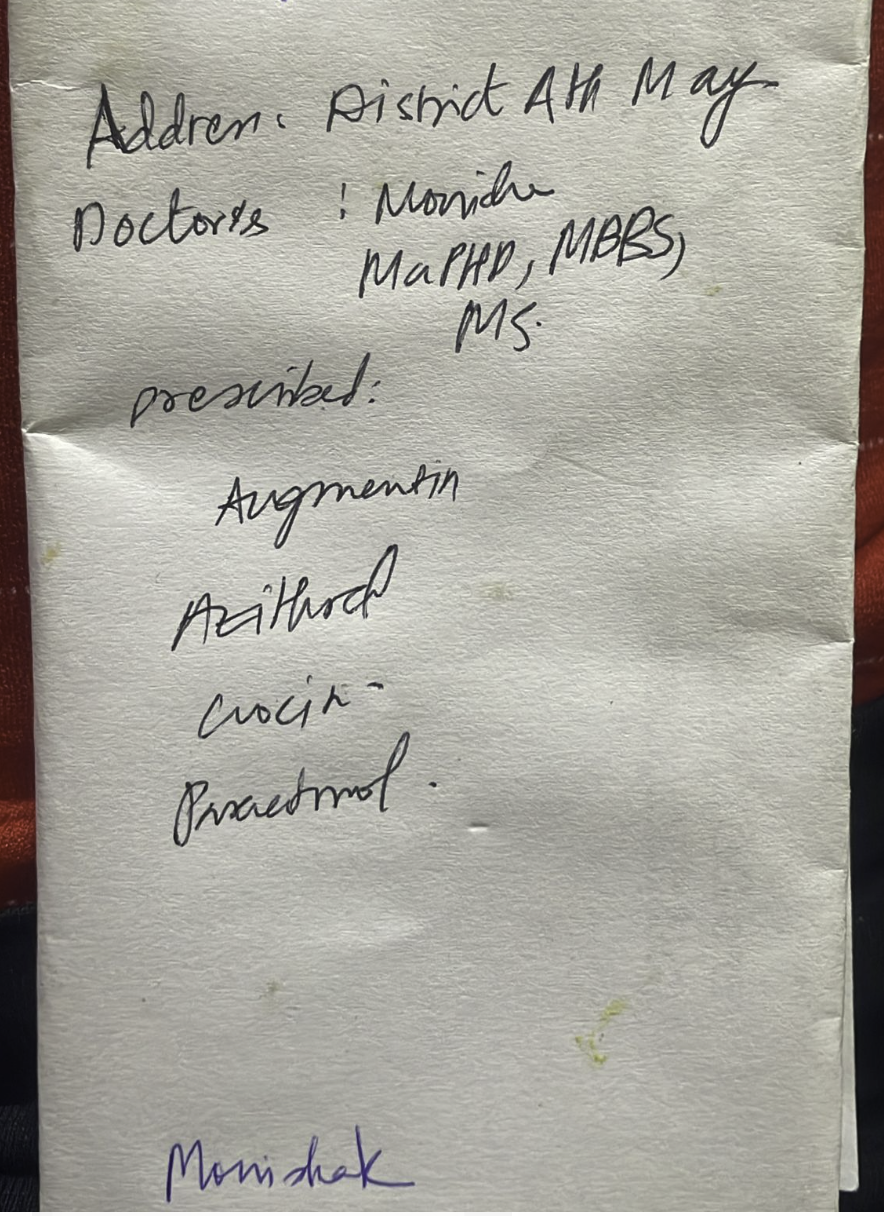 Address: District Ath May
Doctor's : Monisha
MaPHD, MBBS,
MS.
prescribed:
Augmentin
Azithrod
Crocin -
Paracetmol.
Monishak